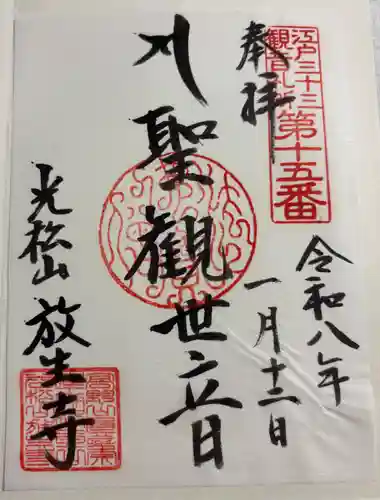 奉拝
江戸三十三
観音札所
第十五番
令和八年
一月十二日
聖観世音
光松山
放生寺